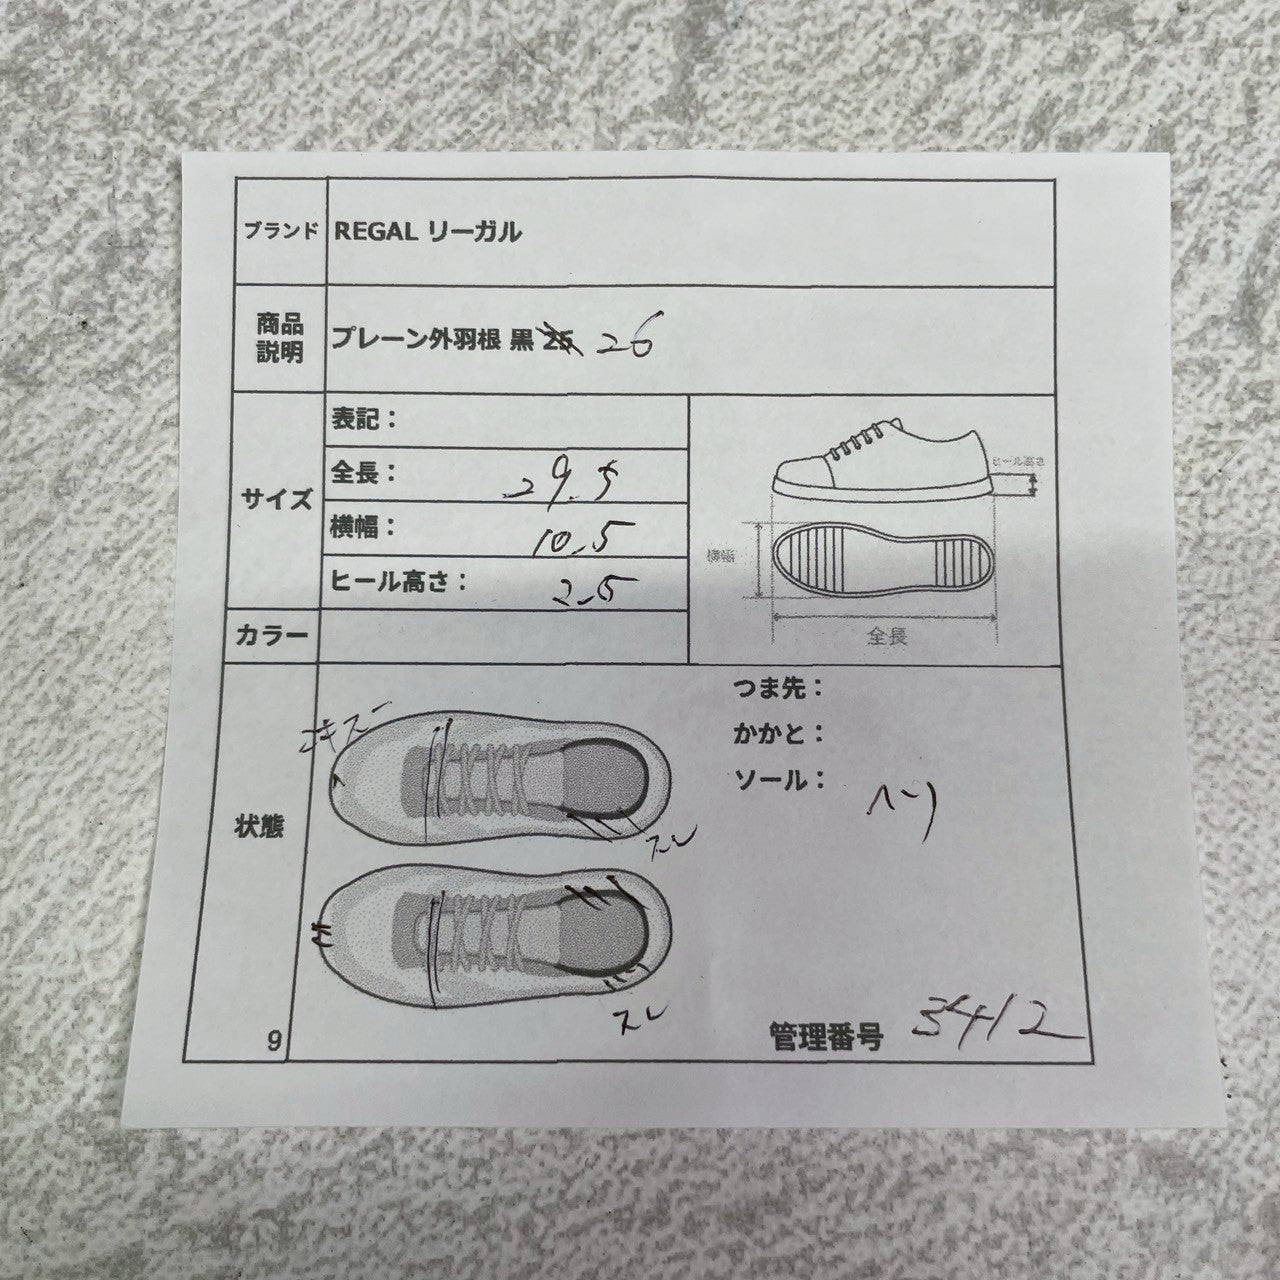 ブランド REGAL リーガル
商品説明 プレーン外羽根 黒 26
サイズ
表記：
全長： 29.5
横幅： 10.5
ヒール高さ： 2.5
ヒール高さ
横幅
全長
カラー
状態
つま先：
かかと：
ソール： ヘリ
キズ
スレ
スレ
9
管理番号 3412